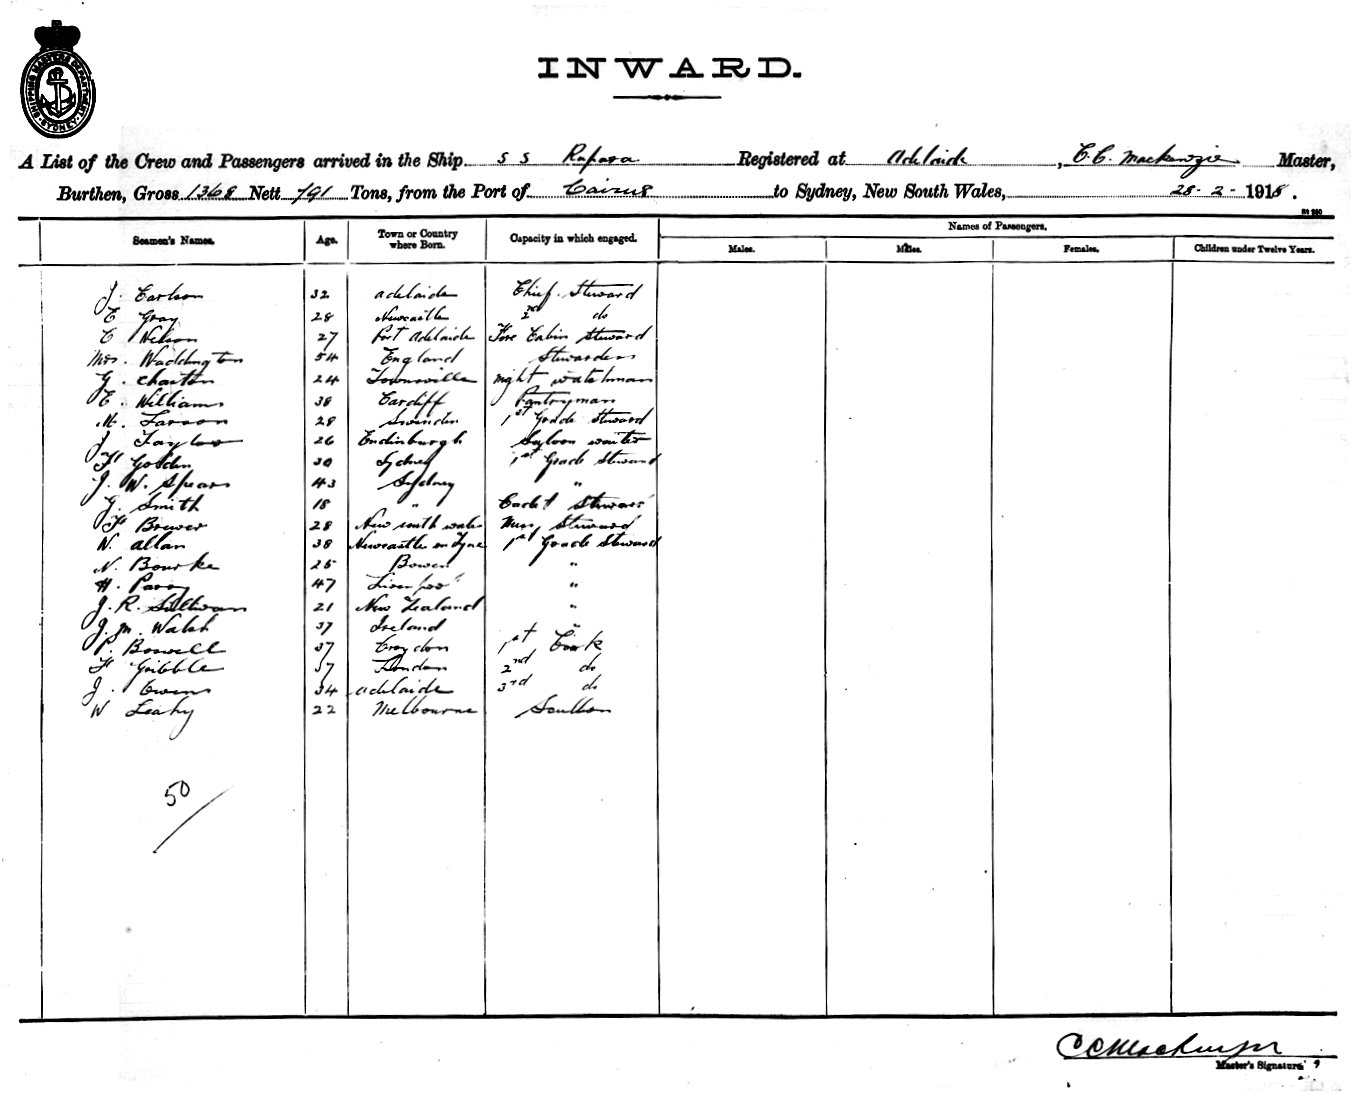 SHIPPING MASTERS DEPARTMENT
SYDNEY
INWARD.
A List of the Crew and Passengers arrived in the Ship S S Rapara Registered at Adelaide, C.C. Mackenzie Master,
Burthen, Gross 1368 Nett 791 Tons, from the Port of Cairns to Sydney, New South Wales, 28-2-1918.
Names of Passengers.
Seamen's Names. Age. Town or Country where Born. Capacity in which engaged. Males. Males. Females. Children under Twelve Years.
J. Carlson 32 Adelaide Chief Steward
E Gray 28 Newcastle 2nd do
C Nelson 27 Port Adelaide Fore Cabin Steward
Mrs. Waddington 54 England Stewardess
G. Charton 24 Townsville night watchman
E. Williams 38 Cardiff Pantryman
M. Larson 28 Swinden 1st Grade Steward
J. Taylor 26 Endinburgh Saloon waiter
F Goldin 30 Sydney 1st Grade Steward
J. W. Spears 43 Sydney "
G. Smith 18 " Cadet Steward
F Brewer 28 New south wales Mess Steward
W. Allan 38 Newcastle on Tyne 1st Grade Steward
N. Bourke 25 Bowen "
H. Parry 47 Liverpool "
J. R. Sullivan 21 New Zealand "
J. M. Walsh 37 Ireland "
P. Boswell 37 Croydon 1st Cook
F Gribble 37 London 2nd do
J. Owens 34 Adelaide 3rd do
W Leahy 22 Melbourne Scullion
50
C C Mackenzie
Master's Signature